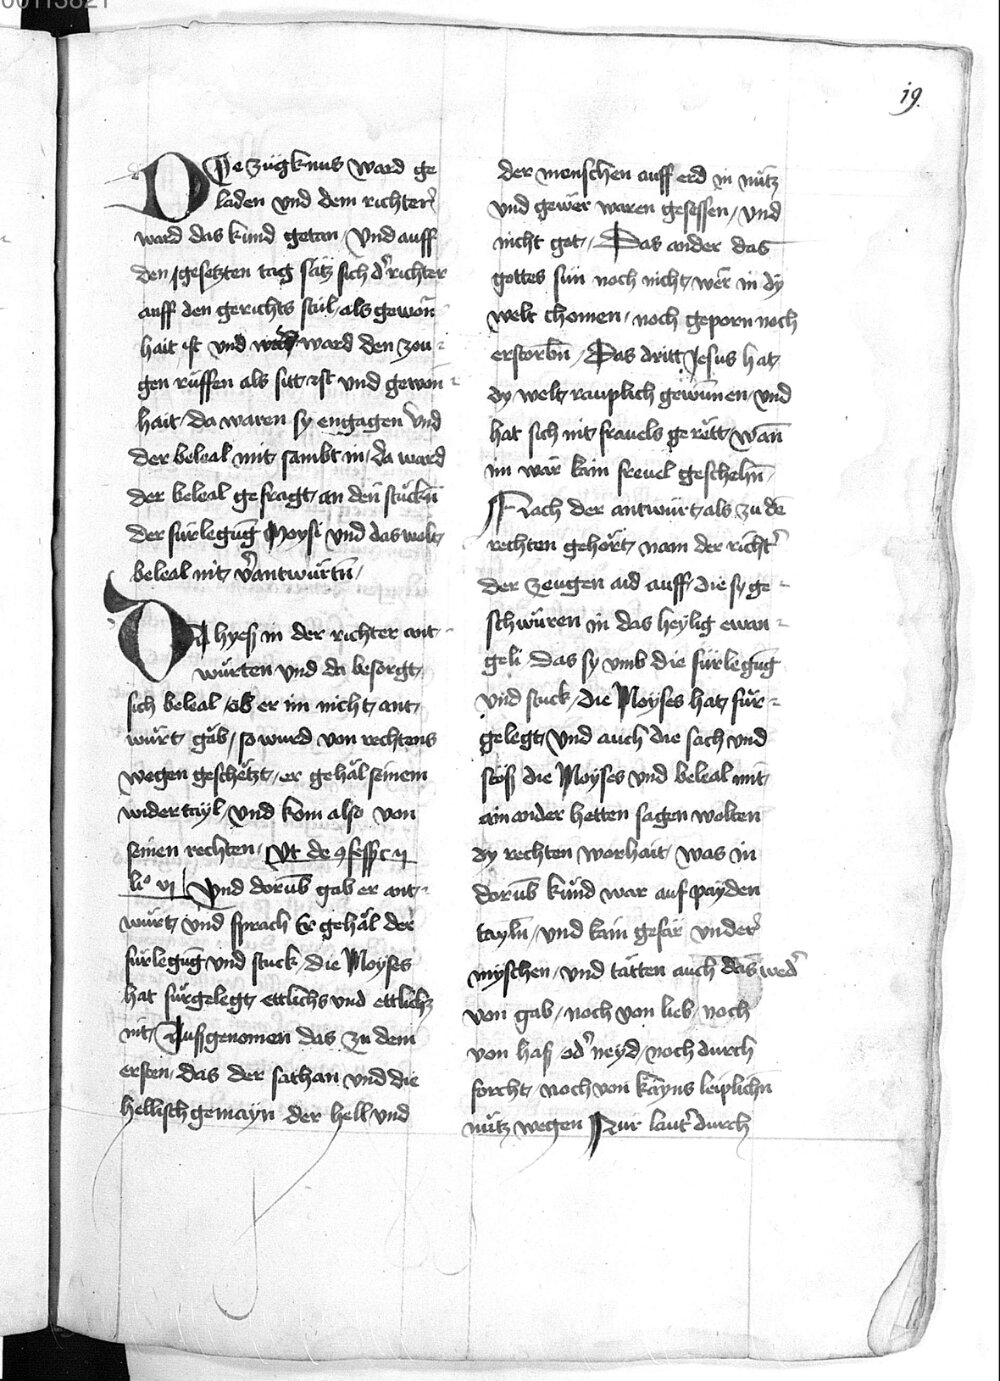 00113821
19.
DIe zügknus ward ge
laden vnd dem richter͛
ward das kund getan / Vnd auff
den gesetzten tag satz sich d͛ richter
auff den gerichts stul / als gewon
hait ist vnd ward den zeu-
gen rüffen als sitt ist vnd gewon-
hait / da waren sy engagen Vnd
der beleal mit sambt in / da ward
der beleal gefragt / an den stückn̄
der fürlegūg Moysi vnd das wolt
beleal nit v͛antwürtn̄ /
DA hyeſʒ in der richter ant-
würten vnd da besorgt
sich beleal / ob er im nicht ant
würt gäb / so wurd von rechtens
wegen geschëtzt / er gehäl seinem
widertayl / vnd kom also von
seinen rechten / Vt de ꝯfess c ij
li° vj Vnd dorūb gab er ant-
würt / vnd sprach Er gehäl der
fürlegūg vnd stuck / die Moyses
hat fürgelegt / ettlichs vnd ettlichs
nit / Ausgenomen das zu dem
ersten / das der sathan vnd die
hellisch gemayn der hell / vnd
der menschen auff erd in nütz
vnd gewer waren gesessen / vnd
nicht got / Das ander das
gottes sün noch nicht / wër in dy
welt chomen / noch geporn noch
erstorbn̄ / Das dritt / Jesus hat
dy welt rauplich gewūnen / vnd
hat sich nit frauels gerëtt / wan̄
im wär kain freuel geschehn̄ /
Nach der antwürt / als zu dē
rechten gehört / nam der richt͛
der zeugen aid auff / die sy ge-
schwüren in das heylig ewan-
geli das sy vmb die fürlegūg
vnd stuck / die Moyses hat für-
gelegt / Vnd auch die sach vnd
stöſʒ die Moyses vnd beleal mit
ain ander hetten sagen wolten
dy rechten worhait / was in
dorūb kund war auf payden
tayln̄ / vnd kain gefär vnder͛
myschen / vnd tätten auch das wed͛
von gab / noch von lieb / noch
von haſʒ od͛ neyd / noch durch
forcht / noch von kayns leiplichn̄
nütz wegen Nur laut͛ durch